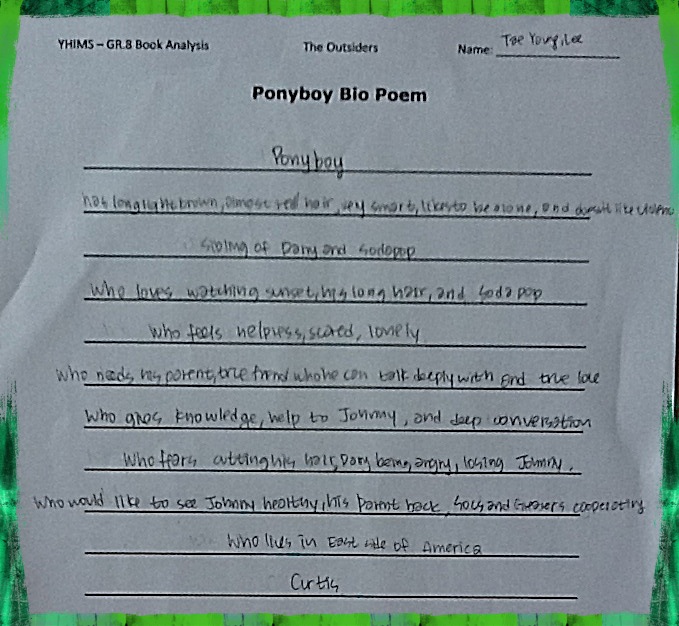 YHIMS – GR.8 Book Analysis The Outsiders Name: Tae Young, Lee
Ponyboy Bio Poem
Ponyboy
has long light brown, almost red hair, very smart, likes to be alone, and doesn't like violence
Sibling of Darry and Sodapop
Who loves watching sunset, his long hair, and Soda pop
Who feels helpless, scared, lonely
Who needs his parent, true friend who he can talk deeply with and true love
Who gives knowledge, help to Johnny, and deep conversation
Who fears cutting his hair, Dary being angry, losing Johnny.
Who would like to see Johnny healthy, his parent back, Socs and Greasers cooperating
Who lives in East side of America
Curtis